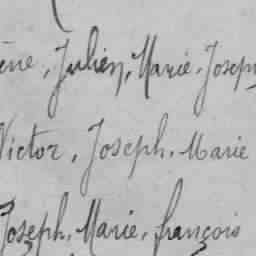 ène, Julien, Marie, Joseph
Victor, Joseph, Marie
Joseph, Marie, françois